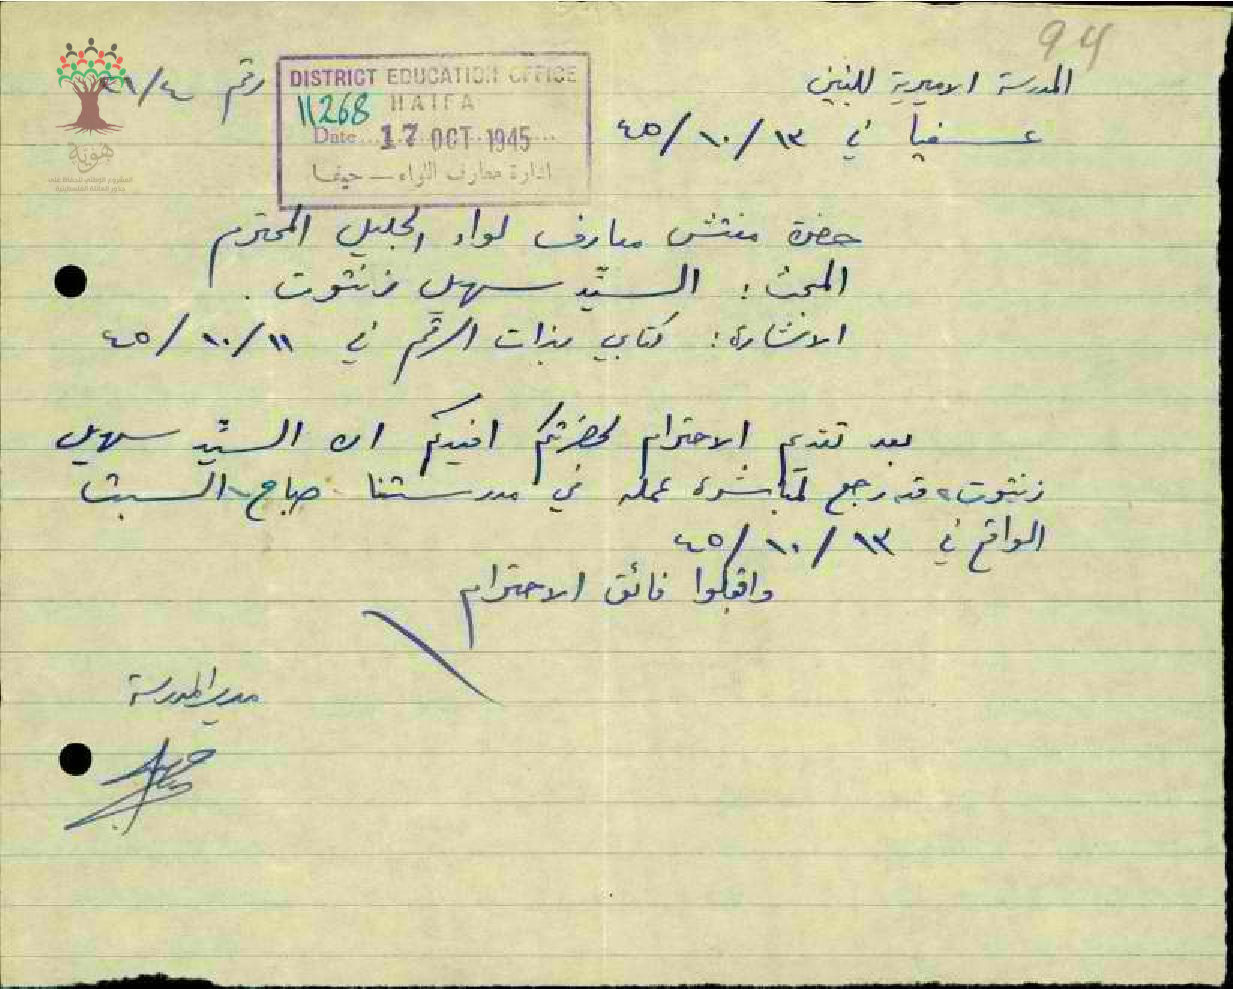 94
المدرسة الاميرية للبنين
عسفيا في ١٣/١٠/٤٥
رقم
DISTRICT EDUCATION OFFICE
11268 HAIFA
Date 17 OCT 1945
ادارة معارف اللواء — حيفا
هوية
المشروع الوطني للحفاظ على
جذور العائلة الفلسطينية
حضرة مفتش معارف لواء الجليل المحترم
المبحث : السيّد سهيل زنتوت .
الاشارة : كتابي بذات الرقم في ١١/١٠/٤٥
بعد تقديم الاحترام لحضرتكم افيدكم ان السيّد سهيل
زنتوت قد رجع لمباشرة عمله في مدرستنا صباح السبت
الواقع في ١٣/١٠/٤٥
واقبلوا فائق الاحترام
مدير المدرسة